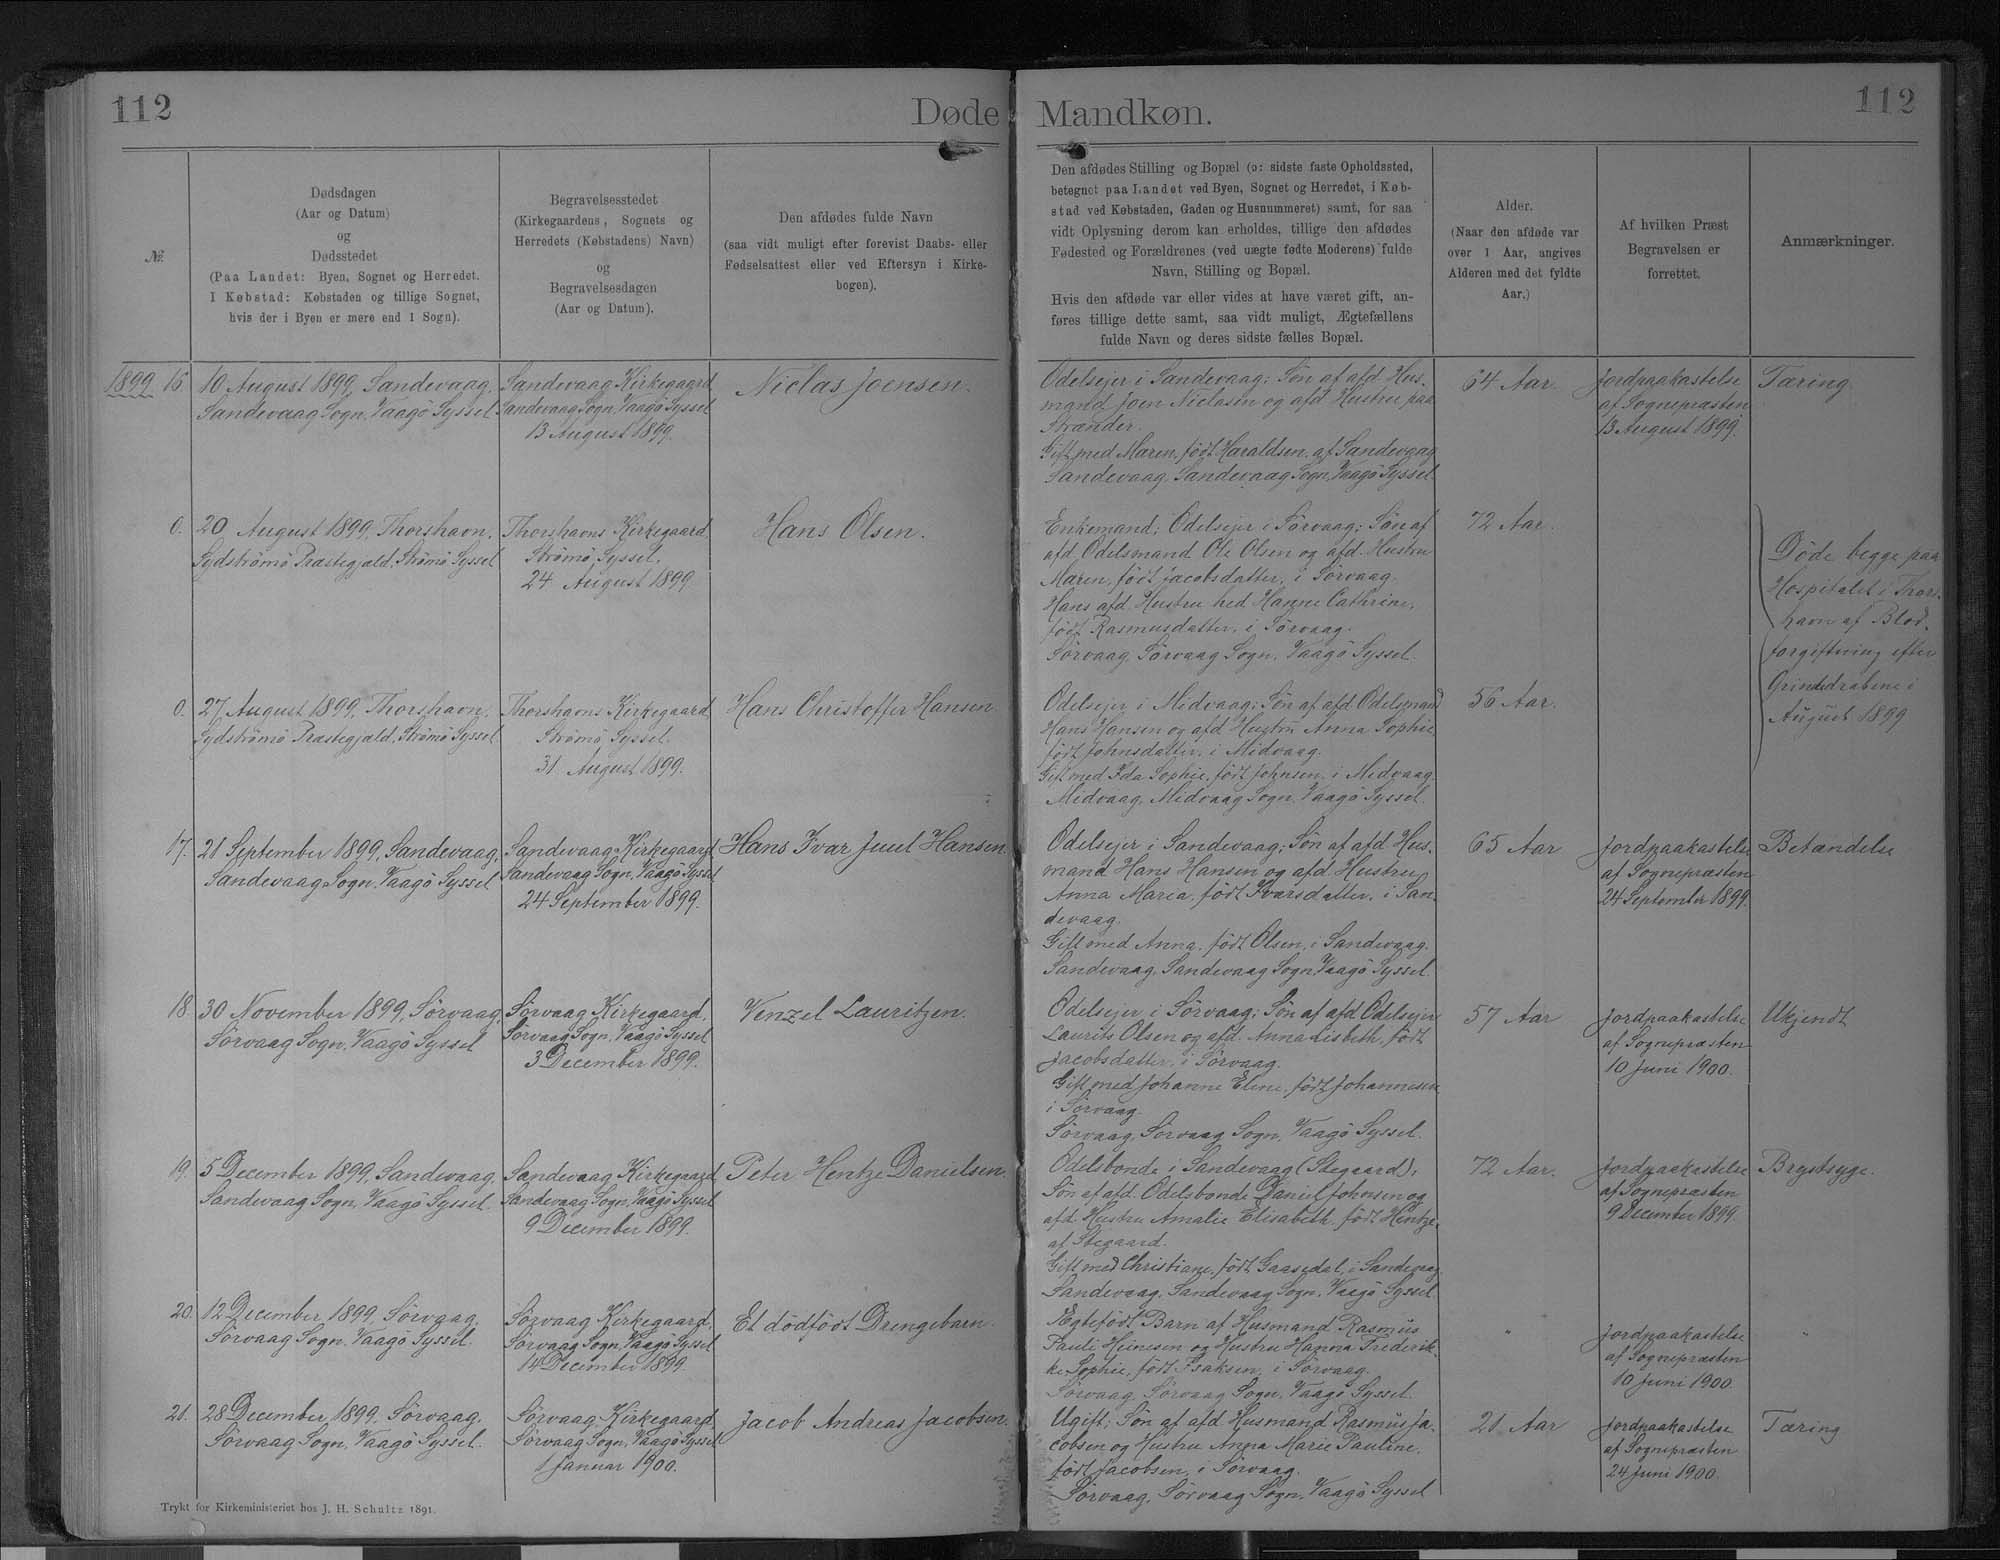 112
Døde
Mandkøn.
112
№
Dødsdagen
(Aar og Datum)
og
Dødsstedet
(Paa Landet: Byen, Sognet og Herredet.
I Købstad: Købstaden og tillige Sognet,
hvis der i Byen er mere end 1 Sogn).
Begravelsesstedet
(Kirkegaardens, Sognets og
Herredets (Købstadens) Navn)
og
Begravelsesdagen
(Aar og Datum).
Den afdødes fulde Navn
(saa vidt muligt efter forevist Daabs- eller
Fødselsattest eller ved Eftersyn i Kirke-
bogen).
Den afdødes Stilling og Bopæl (ɔ: sidste faste Opholdssted,
betegnet paa Landet ved Byen, Sognet og Herredet, i Køb-
stad ved Købstaden, Gaden og Husnummeret) samt, for saa
vidt Oplysning derom kan erholdes, tillige den afdødes
Fødested og Forældrenes (ved uægte fødte Moderens) fulde
Navn, Stilling og Bopæl.
Hvis den afdøde var eller vides at have været gift, an-
føres tillige dette samt, saa vidt muligt, Ægtefællens
fulde Navn og deres sidste fælles Bopæl.
Alder.
(Naar den afdøde var
over 1 Aar, angives
Alderen med det fyldte
Aar.)
Af hvilken Præst
Begravelsen er
forrettet.
Anmærkninger.
1899 16. 10 August 1899, Sandevaag,
Sandevaag Sogn, Vaagö Syssel
Sandevaag Kirkegaard
Sandevaag Sogn, Vaagö Syssel
13 August 1899.
Niclas Joensen.
Odelsejer i Sandevaag; Søn af afd. Hus-
mand Joen Niclasen og afd. Hustru paa
Strænder.
Gift med Maren, født Haraldsen, af Sandevaag
Sandevaag, Sandevaag Sogn, Vaagö Syssel.
64 Aar
Jordpaakastelse
af Sognepræsten
13 August 1899.
Tæring
0. 20 August 1899, Thorshavn,
Sydströmö Præstegjæld, Strömö Syssel
Thorshavns Kirkegaard,
Strömö Syssel,
24 August 1899
Hans Olsen.
Enkemand; Odelsejer i Sörvaag; Søn af
afd. Odelsmand Ole Olsen og afd. Hustru
Maren, født Jacobsdatter, i Sörvaag.
Hans afd. Hustru hed Hanne Cathrine,
født Rasmusdatter, i Sörvaag.
Sörvaag, Sörvaag Sogn, Vaagö Syssel.
72 Aar.
Døde begge paa
Hospitalet i Thors-
havn af Blod-
forgiftning efter
Grindedrabene i
August 1899
0. 27 August 1899, Thorshavn,
Sydströmö Præstegjæld, Strömö Syssel
Thorshavns Kirkegaard
Strömö Syssel.
31 August 1899.
Hans Christoffer Hansen
Odelsejer i Midvaag; Søn af afd. Odelsmand
Hans Hansen og afd. Hustru Anna Sophie,
født Johnsdatter, i Midvaag.
Gift med Ida Sophie, født Johnsen, i Midvaag.
Midvaag, Midvaag Sogn, Vaagö Syssel.
56 Aar.
17. 21 September 1899, Sandevaag,
Sandevaag Sogn, Vaagö Syssel
Sandevaag Kirkegaard,
Sandevaag Sogn, Vaagö Syssel
24 September 1899.
Hans Ivar Juul Hansen.
Odelsejer i Sandevaag; Søn af afd. Hus-
mand Hans Hansen og afd. Hustru
Anna Maria, født Ivarsdatter, i San-
devaag.
Gift med Anna, født Olsen, i Sandevaag.
Sandevaag, Sandevaag Sogn, Vaagö Syssel.
65 Aar
Jordpaakastelse
af Sognepræsten
24 September 1899.
Betændelse
18. 30 November 1899, Sörvaag,
Sörvaag Sogn, Vaagö Syssel
Sörvaag Kirkegaard,
Sörvaag Sogn, Vaagö Syssel
3 December 1899.
Venzel Lauritzen.
Odelsejer i Sörvaag; Søn af afd. Odelsejer
Laurits Olsen og afd. Anna Lisbeth, født
Jacobsdatter, i Sörvaag.
Gift med Johanne Eline, født Johannesen
i Sörvaag.
Sörvaag, Sörvaag Sogn, Vaagö Syssel.
57 Aar
Jordpaakastelse
af Sognepræsten
10 Juni 1900.
Ukjendt
19. 5 December 1899, Sandevaag,
Sandevaag Sogn, Vaagö Syssel.
Sandevaag Kirkegaard
Sandevaag Sogn, Vaagö Syssel
9 December 1899.
Peter Hentze Danielsen.
Odelsbonde i Sandevaag (Stegaard);
Søn af afd. Odelsbonde Daniel Johnsen og
afd. Hustru Amalie Elisabeth, født Hentze,
af Stegaard.
Gift med Christiane, født Gaasedal, i Sandevaag
Sandevaag, Sandevaag Sogn, Vaagö Syssel.
72 Aar.
Jordpaakastelse
af Sognepræsten
9 December 1899.
Brystsyge.
20. 12 December 1899, Sörvaag,
Sörvaag Sogn, Vaagö Syssel.
Sörvaag Kirkegaard,
Sörvaag Sogn, Vaagö Syssel
14 December 1899.
Et dödfödt Drengebarn.
Ægtefödt Barn af Husmand Rasmus
Pauli Heinesen og Hustru Hanna Frederik-
ke Sophie, født Isaksen, i Sörvaag.
Sörvaag, Sörvaag Sogn, Vaagö Syssel.
"
Jordpaakastelse
af Sognepræsten
10 Juni 1900.
"
21. 28 December 1899, Sörvaag,
Sörvaag Sogn, Vaagö Syssel.
Sörvaag Kirkegaard
Sörvaag Sogn, Vaagö Syssel
1 Januar 1900.
Jacob Andreas Jacobsen.
Ugift; Søn af afd. Husmand Rasmus Ja-
cobsen og Hustru Anna Marie Pauline,
født Jacobsen, i Sörvaag.
Sörvaag, Sörvaag Sogn, Vaagö Syssel
21 Aar
Jordpaakastelse
af Sognepræsten
24 Juni 1900.
Tæring
Trykt for Kirkeministeriet hos J. H. Schultz 1891.